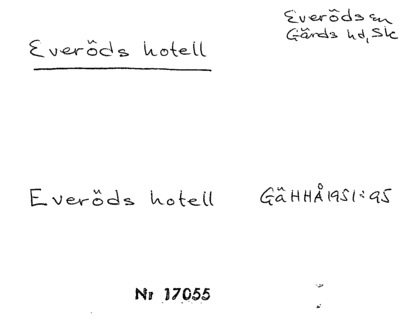 Everöds hotell
Everöds sn
Gärds hd, Sk
Everöds hotell
GäHHÅ 1951:95
Nr 17055